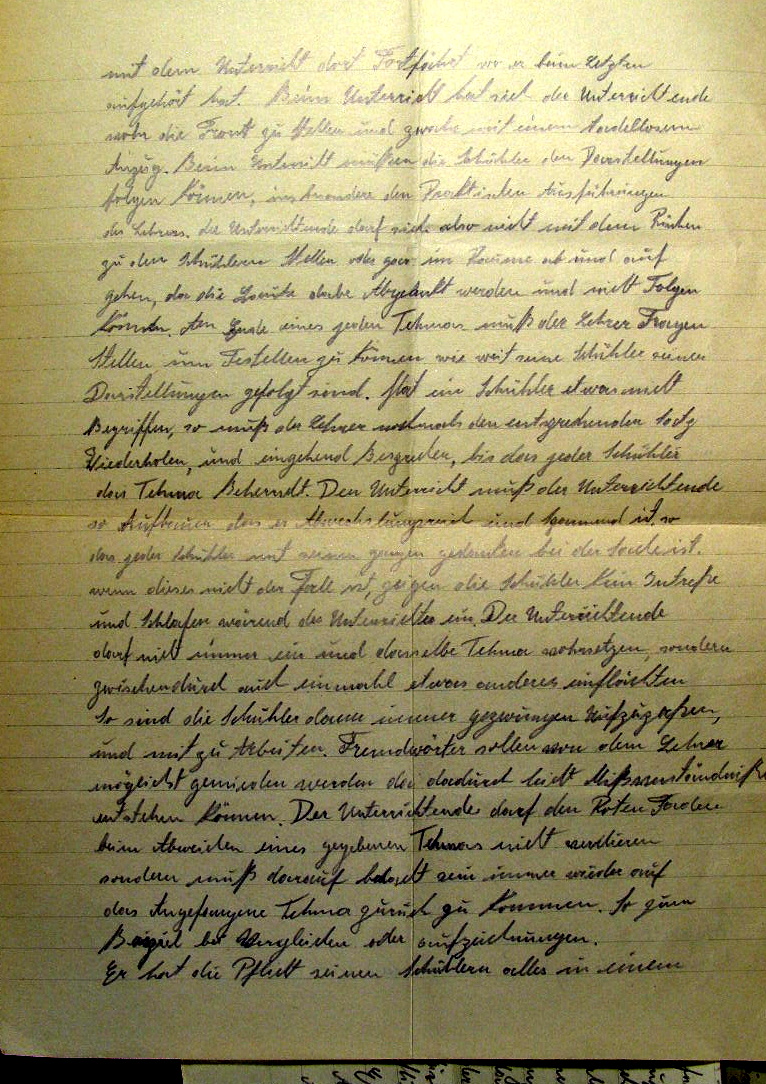 mit dem Unterricht dort Fortfährt wo er beim letzten
aufgehört hat. Beim Unterricht hat sich der Unterrichtende
vohr die Front zu Stellen und zwahr mit einem tardellosem
Anzug. Beim Unterricht müßen die Schühler den Darstellungen
folgen können, insbesondere den Praktischen Ausführungen
des Lehrers. der Unterrichtende darf sich also nicht mit dem Rücken
zu den Schühlern Stellen oder gar im Raume ab und auf
gehen, da die Leute dabe Abgelenkt werden und nicht Folgen
können. Am Ende eines jeden Tehmas muß der Lehrer Fragen
Stellen um Festellen zu können wie weit seine Schühler seinen
Darstellungen gefolgt sind. Hat ein Schühler etwas nicht
Begriffen, so muß der Lehrer nochmals den entsprechenden Satz
Wiederholen, und eingehend Besprechen, bis das jeder Schühler
das Tehma Beherrscht. Den Unterricht muß der Unterrichtende
so Aufbauen das er Abwechslungsreich und Spannend ist, so
das jeder Schühler mit seinen ganzen gedanken bei der Sache ist.
wenn dieses nicht der Fall ist, zeigen die Schühler kein Intreße
und Schlafen während des Unterrichtes ein. Der Unterrichtende
darf nicht immer ein und dasselbe Tehma vohrsetzen, sondern
zwischendurch auch einmahl etwas anderes einflächten
So sind die Schühler dann immer gezwungen Aufzupaßen,
und mit zu Arbeiten. Fremdwörter sollen von dem Lehrer
möglichst gemieden werden da dadurch leicht Mißverständniße
entstehen können. Der Unterrichtende darf den Roten Faden
beim Abweichen eines gegebenen Tehmas nicht verlieren
sondern muß darauf bedacht sein immer wieder auf
das Angefangene Tehma zurück zu kommen. So zum
Beispiel bei Vergleichen oder aufzeichnungen.
Er hat die Pflicht seinen Schühlern alles in einem